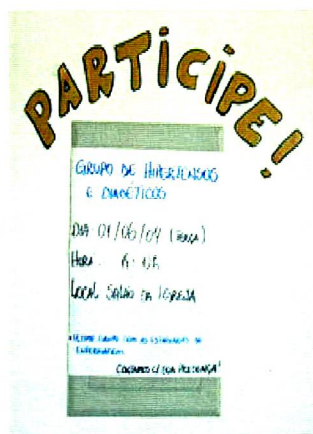 PARTICIPE!
GRUPO DE HIPERTENSOS
E DIABÉTICOS
DIA 01/06/04 (TERÇA)
HORA:
LOCAL SALÃO DA IGREJA
ÚLTIMO GRUPO COM AS ESTAGIÁRIAS DE
ENFERMAGEM
CONTAMOS C/ SUA PRESENÇA!